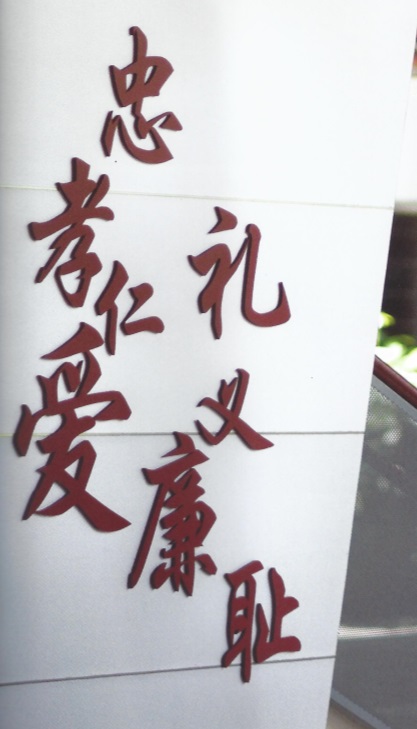 忠孝仁爱
礼义廉耻